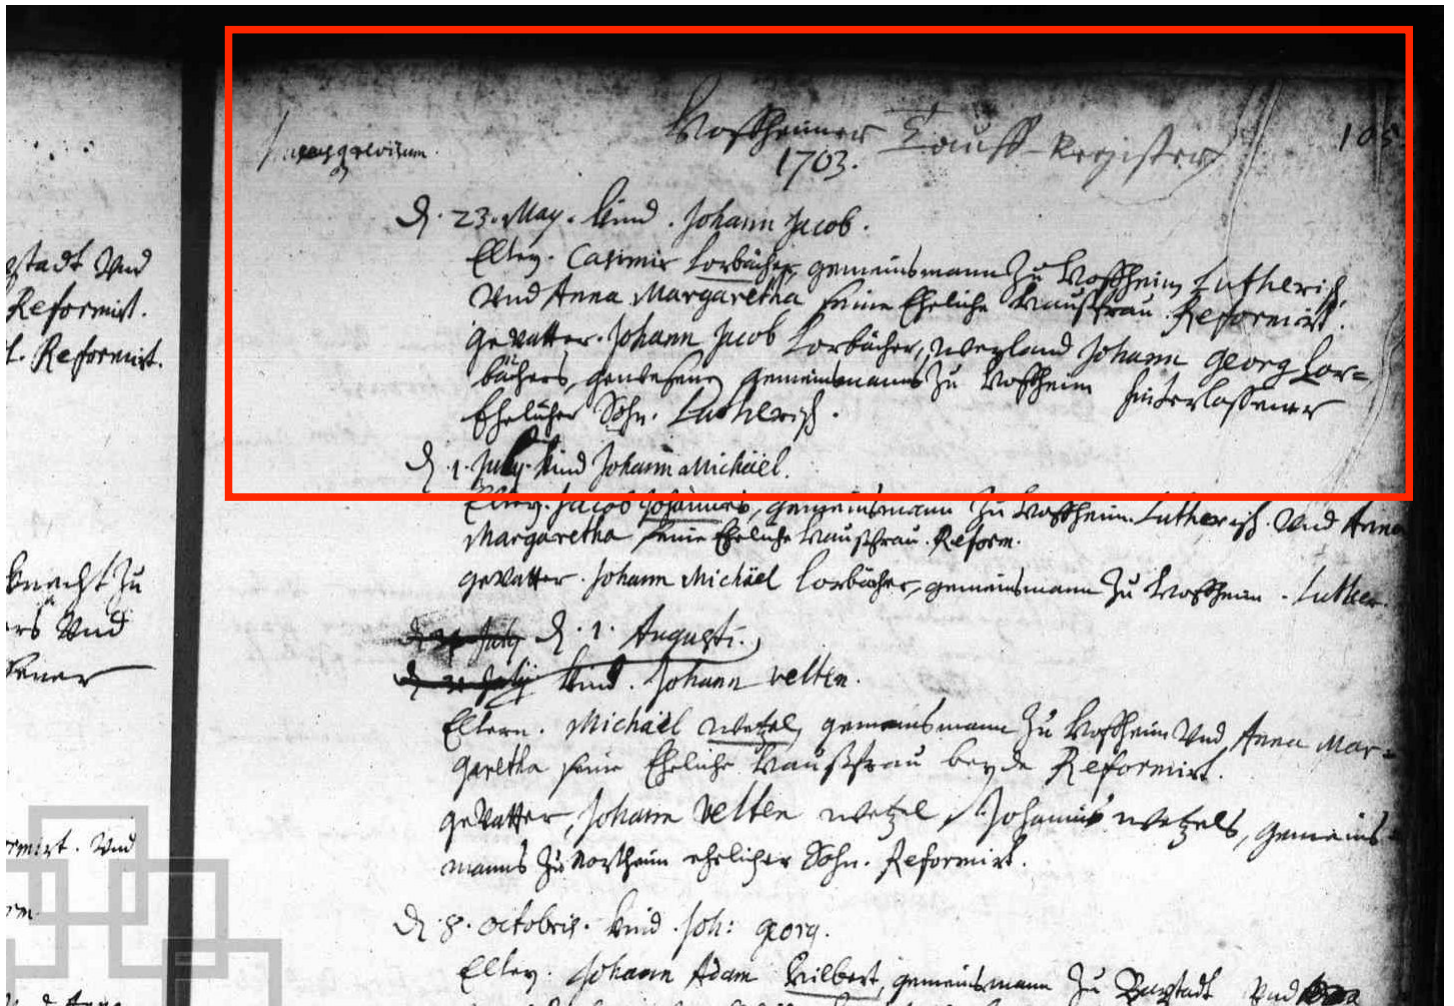 Hofheimer Tauff-Register
105
1703.
D. 23. May. Kind. Johann Jacob.
Eltern. Casimir Lorbächer, gemeinsmann Zu Hofheim Lutherisch.
Und Anna Margaretha seine Eheliche Haußfrau. Reformirt.
gevatter. Johann Jacob Lorbächer, weyland Johann Georg Lor=
bächers, gewesenen gemeinsmanns Zu Hofheim hinterlaßener
Ehelicher Sohn. Lutherisch.
D. 1. July. Kind Johann Michäel.
Eltern. Jacob Johannes, gemeinsmann Zu Hofheim. Lutherisch. Und Anna
Margaretha seine Eheliche Haußfrau. Reform.
gevatter. Johann Michäel Lorbächer, gemeinsmann Zu Hofheim. Luther.
July D. 1. Augusti.
July Kind. Johann Velten.
Eltern. Michäel Wetzel, gemeinsmann Zu Hofheim Und Anna Mar=
garetha seine Eheliche Haußfrau beyde Reformirt.
gevatter, Johann Velten Wetzel, Johannis Wetzels, gemeins=
manns Zu Northeim ehelicher Sohn. Reformirt.
D. 8. Octobris. Kind. Joh: Georg.
Eltern. Johann Adam Hilbert, gemeinsmann Zu Und
stadt Und
Reformirt.
Reformirt.
knecht Zu
Und
Und